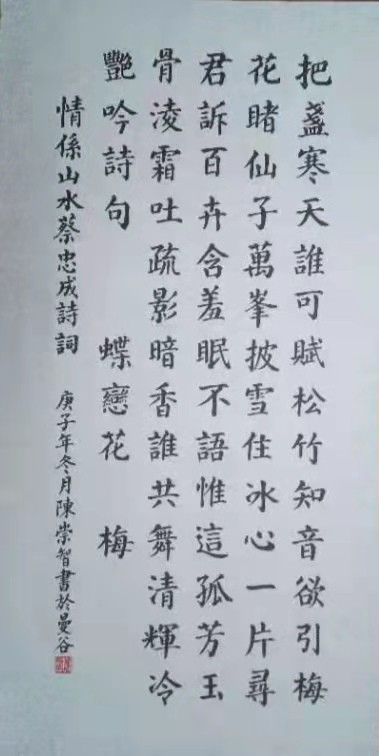 把盞寒天誰可賦松竹知音欲引梅
花睹仙子萬峯披雪住冰心一片尋
君訴百卉含羞眠不語惟這孤芳玉
骨淩霜吐疏影暗香誰共舞清輝冷
艷吟詩句 蝶戀花 梅
情係山水蔡忠成詩詞 庚子年冬月陳崇智書於曼谷